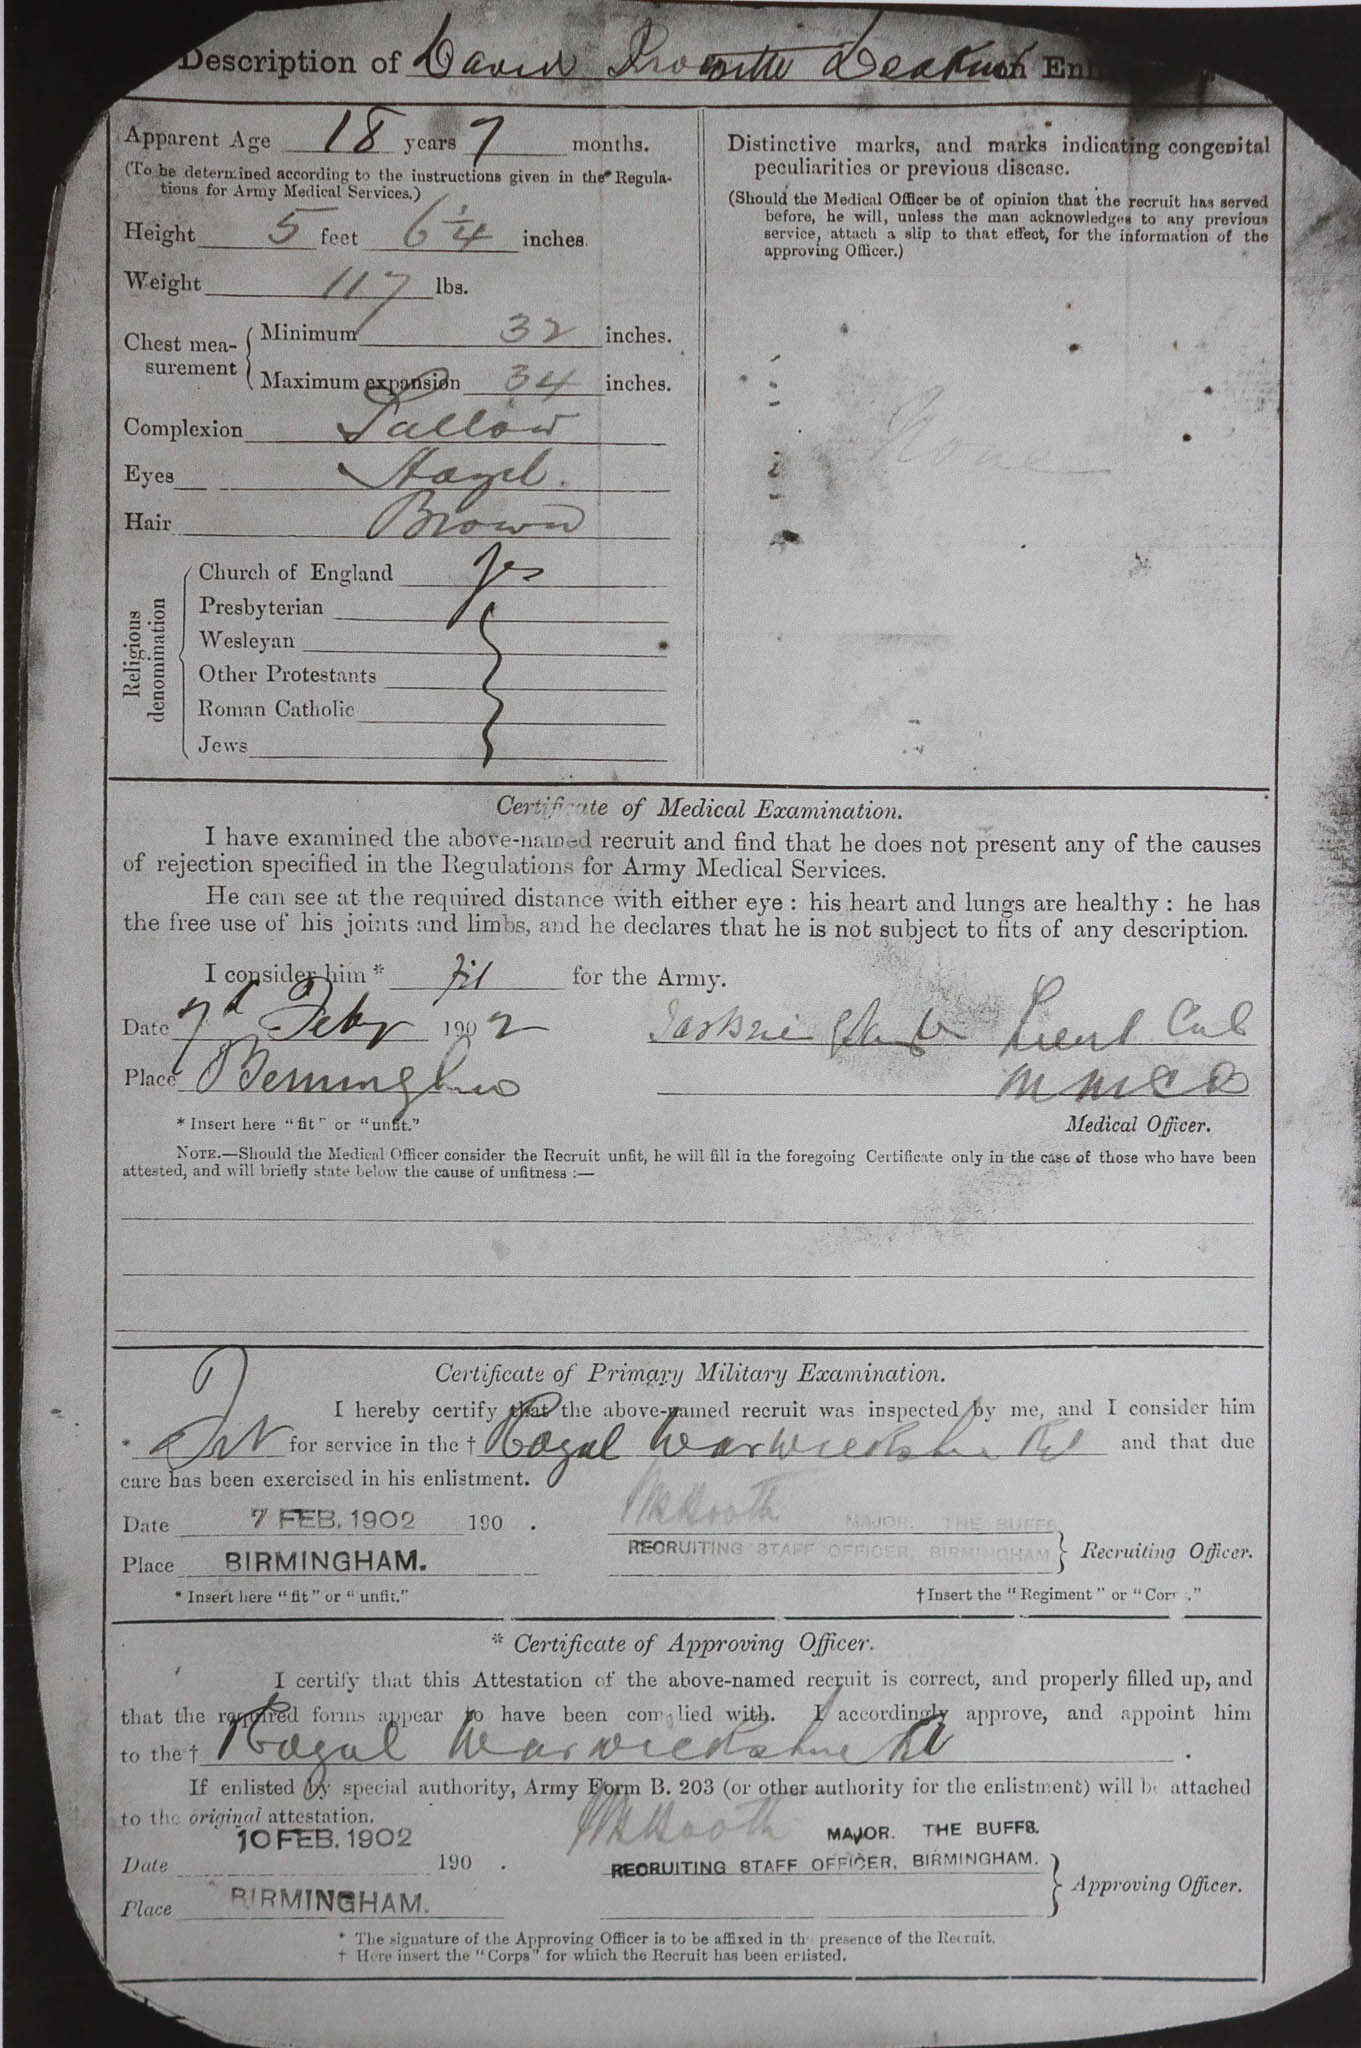 Description of David Leakin on En
Apparent Age 18 years 7 months.
(To be determined according to the instructions given in the Regula-
tions for Army Medical Services.)
Height 5 feet 6 1/4 inches.
Weight 117 lbs.
Chest mea-
surement
Minimum 32 inches.
Maximum expansion 34 inches.
Complexion Sallow
Eyes Hazel.
Hair Brown
Religious
denomination
Church of England Yes
Presbyterian
Wesleyan
Other Protestants
Roman Catholic
Jews
Distinctive marks, and marks indicating congenital
peculiarities or previous disease.
(Should the Medical Officer be of opinion that the recruit has served
before, he will, unless the man acknowledges to any previous
service, attach a slip to that effect, for the information of the
approving Officer.)
None
Certificate of Medical Examination.
I have examined the above-named recruit and find that he does not present any of the causes
of rejection specified in the Regulations for Army Medical Services.
He can see at the required distance with either eye : his heart and lungs are healthy : he has
the free use of his joints and limbs, and he declares that he is not subject to fits of any description.
I consider him * fit for the Army.
Date 7th Feby 1902 Lieut Col
Place Birmingham
* Insert here "fit" or "unfit."
Medical Officer.
NOTE.—Should the Medical Officer consider the Recruit unfit, he will fill in the foregoing Certificate only in the case of those who have been
attested, and will briefly state below the cause of unfitness :—
Certificate of Primary Military Examination.
I hereby certify that the above-named recruit was inspected by me, and I consider him
* Fit for service in the † Royal Warwickshire Rt and that due
care has been exercised in his enlistment.
Date 7 FEB. 1902 190 . MAJOR. THE BUFFS
Place BIRMINGHAM. RECRUITING STAFF OFFICER, BIRMINGHAM Recruiting Officer.
* Insert here "fit" or "unfit." † Insert the "Regiment" or "Corps."
* Certificate of Approving Officer.
I certify that this Attestation of the above-named recruit is correct, and properly filled up, and
that the required forms appear to have been complied with. I accordingly approve, and appoint him
to the † Royal Warwickshire Rt .
If enlisted by special authority, Army Form B. 203 (or other authority for the enlistment) will be attached
to the original attestation.
10 FEB. 1902 MAJOR. THE BUFFS.
Date 190 . RECRUITING STAFF OFFICER, BIRMINGHAM.
Place BIRMINGHAM. Approving Officer.
* The signature of the Approving Officer is to be affixed in the presence of the Recruit.
† Here insert the "Corps" for which the Recruit has been enlisted.